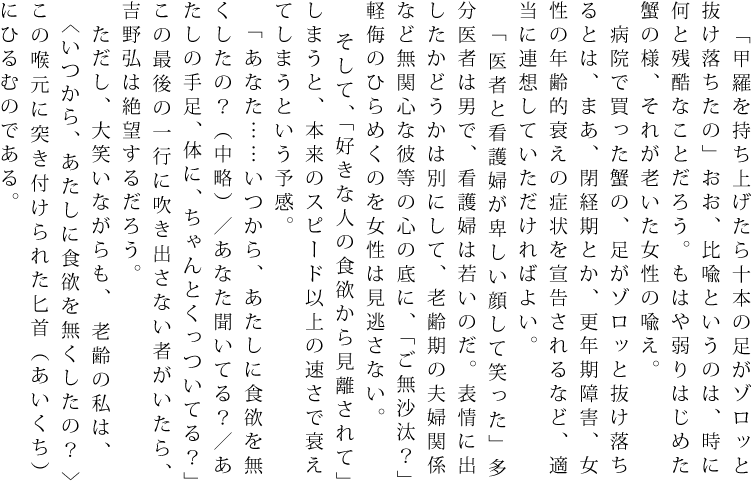 「甲羅を持ち上げたら十本の足がゾロッと
抜け落ちたの」おお、比喩というのは、時に
何と残酷なことだろう。もはや弱りはじめた
蟹の様、それが老いた女性の喩え。
病院で買った蟹の、足がゾロッと抜け落ち
るとは、まあ、閉経期とか、更年期障害、女
性の年齢的衰えの症状を宣告されるなど、適
当に連想していただければよい。
「医者と看護婦が卑しい顔して笑った」多
分医者は男で、看護婦は若いのだ。表情に出
したかどうかは別にして、老齢期の夫婦関係
など無関心な彼等の心の底に、「ご無沙汰？」
軽侮のひらめくのを女性は見逃さない。
そして、「好きな人の食欲から見離されて」
しまうと、本来のスピード以上の速さで衰え
てしまうという予感。
「あなた……いつから、あたしに食欲を無
くしたの？（中略）／あなた聞いてる？／あ
たしの手足、体に、ちゃんとくっついてる？」
この最後の一行に吹き出さない者がいたら、
吉野弘は絶望するだろう。
ただし、大笑いながらも、老齢の私は、
〈いつから、あたしに食欲を無くしたの？〉
この喉元に突き付けられた匕首（あいくち）
にひるむのである。